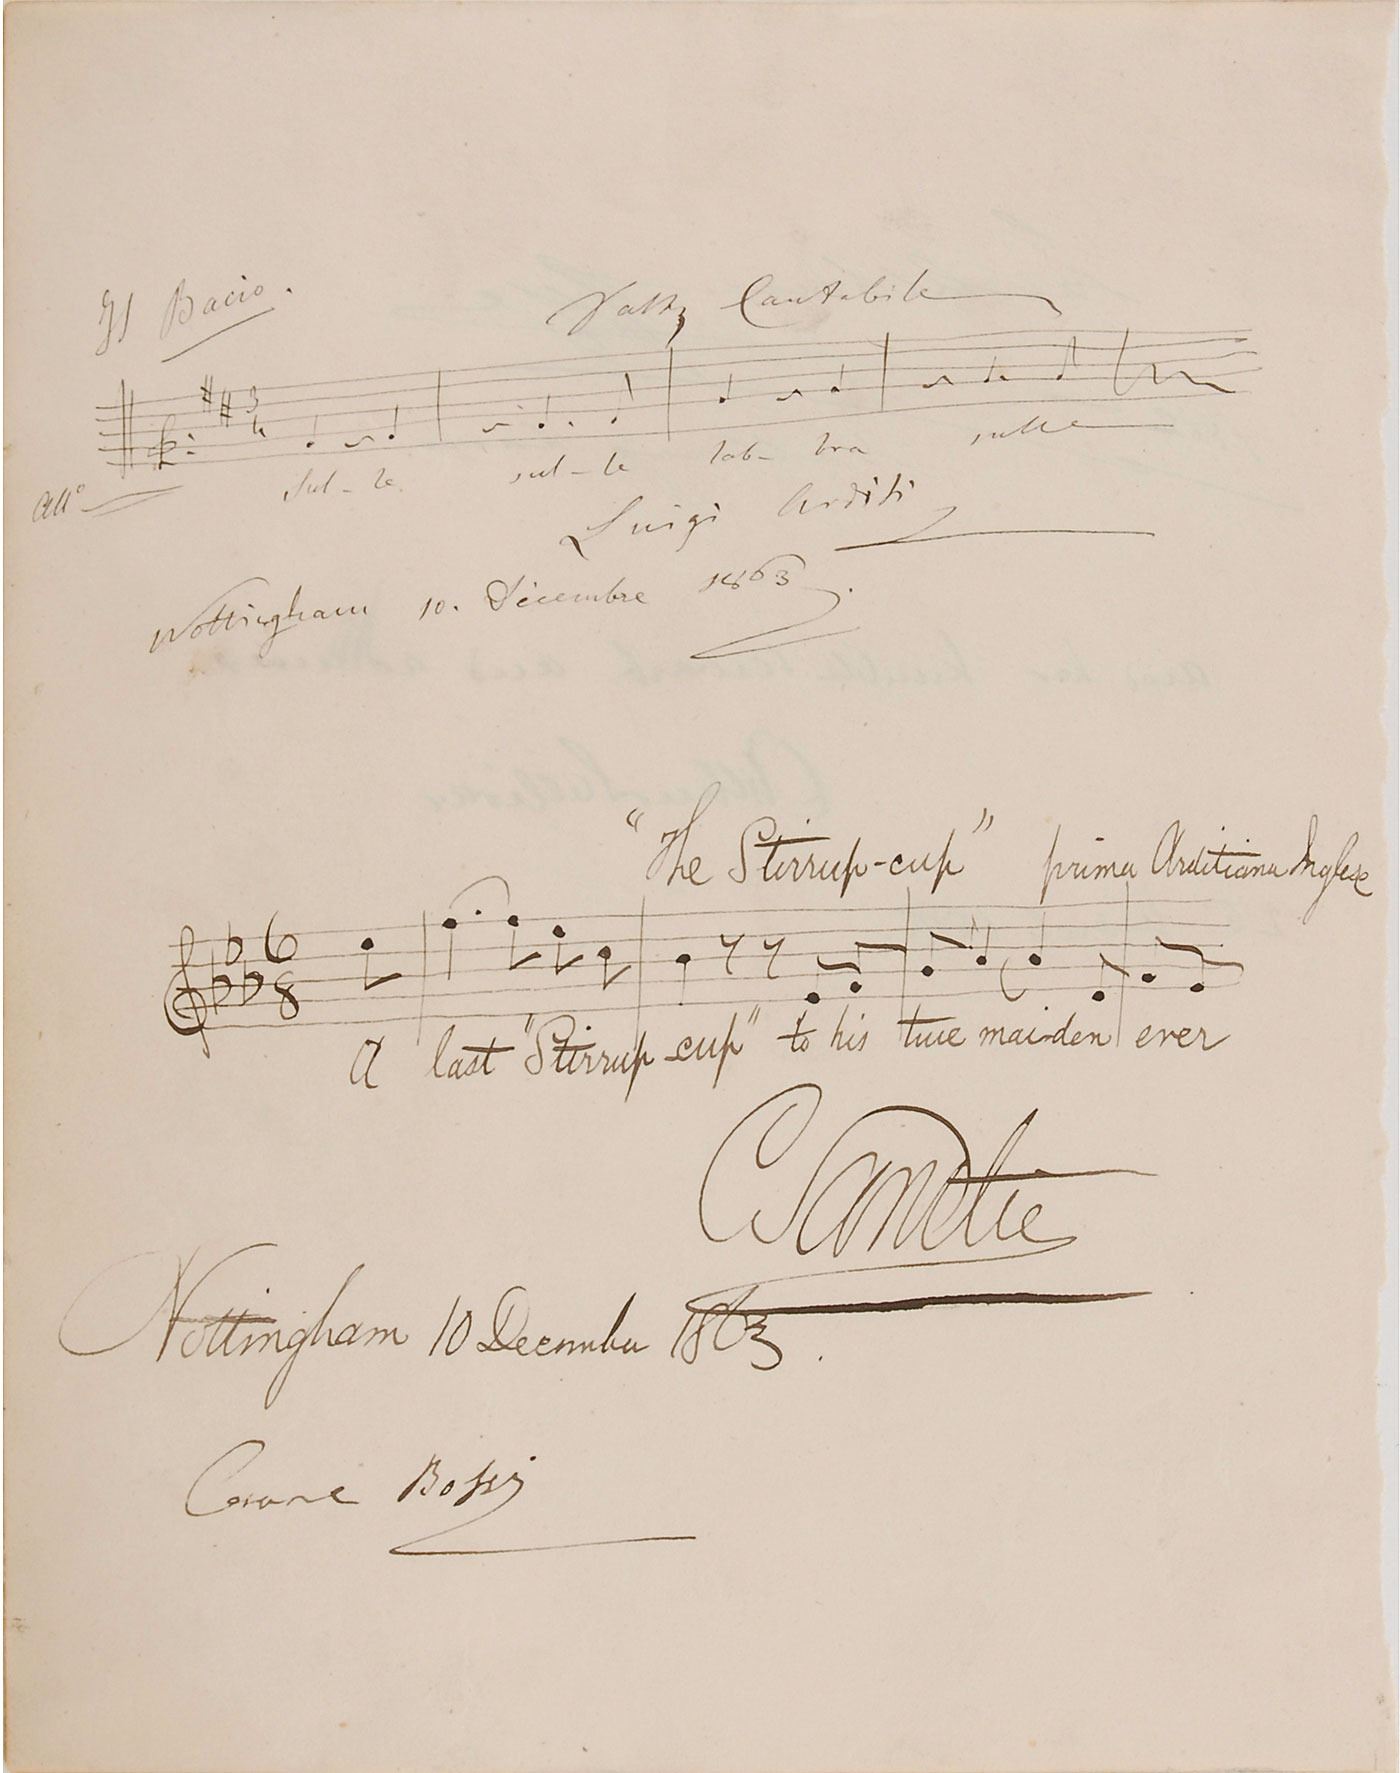 Il Bacio.
Valtz Cantabile
3
4
Sul-le sul-le lab-bra sulle
All°
Luigi Arditi
Nottingham 10. Dicembre 1863.
"The Stirrup-cup" prima Arditiana Inglese
6
8
A last "Stirrup-cup" to his true maiden ever
C Santley
Nottingham 10 December 1863.
Bossi